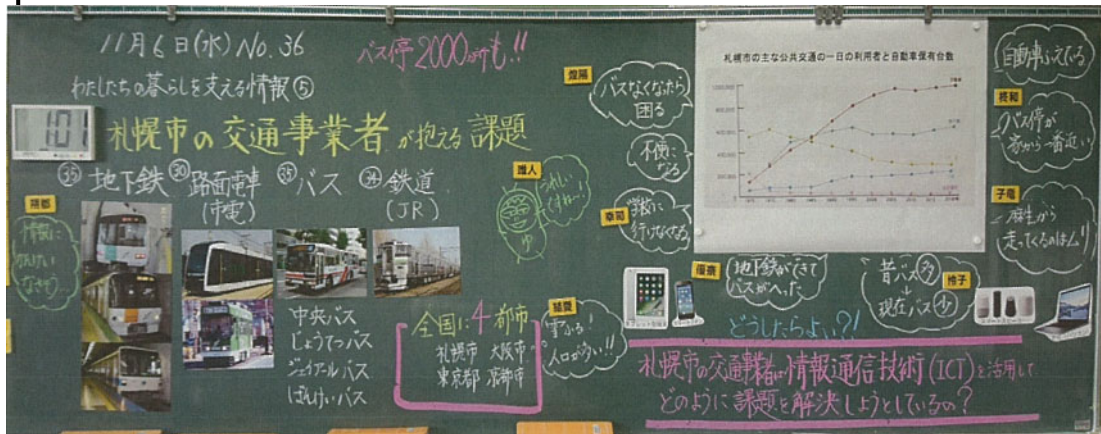 11月6日(水) No.36
バス停2000か所も!!
わたしたちの暮らしを支える情報⑤
101
札幌市の交通事業者が抱える課題
㉟地下鉄
㉚路面電車
(市電)
㉟バス
㉞鉄道
(JR)
中央バス
じょうてつバス
ジェイアールバス
ばんけいバス
全国に4都市
札幌市 大阪市
東京都 京都市
雪ふる!
人口が多い!!
ゆ
バスなくなったら
困る
不便に
なる
学校に
行けなくなる
札幌市の主な公共交通の一日の利用者と自動車保有台数
自動車ふえてる
バス停が
家から一番近い
麻生から
走ってくるのはムリ
地下鉄ができて
バスがへった
昔バス多
↓
現在バス少
どうしたらよい?!
札幌市の交通事業者は情報通信技術(ICT)を活用して
どのように課題を解決しようとしているの?